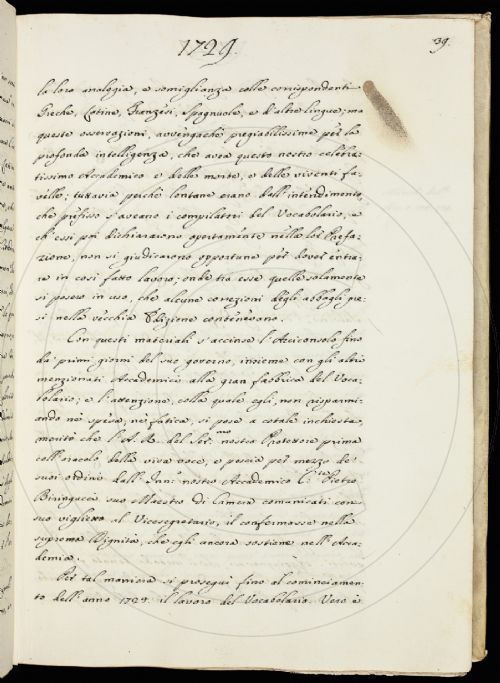 1729.
39.
la loro analogia, e somiglianza colle corrispondenti
Greche, Latine, Franzesi, Spagnuole, e d'altre lingue; ma
queste osservazioni, avvengachè pregiabilissime per la
profonda intelligenza, che avea questo nostro celebra-
tissimo Accademico e delle morte, e delle viventi fa-
velle; tuttavia perchè lontane erano dall'intendimento,
che prefisso s'aveano i compilatori del Vocabolario, e
ch'essi poi dichiararono apertamente nella lor Prefa-
zione, non si giudicarono opportune per dover entra-
re in così fatto lavoro; onde tra esse quelle solamente
si posero in uso, che alcune correzioni degli abbagli pre-
si nella vecchia Edizione contenevano.
Con questi materiali s'accinse l'Arciconsolo fino
da' primi giorni del suo governo, insieme con gli altri
menzionati Accademici alla gran fabbrica del Voca-
bolario; e l'attenzione, colla quale egli, non risparmi-
ando nè spesa, nè fatica, si pose a cotale inchiesta,
meritò che l'A. R. del Ser.mo nostro Protettore prima
coll'oracolo, della viva voce, e poscia per mezzo de'
suoi ordini dall' Inn.o nostro Accademico C.te Pietro
Biringucci suo Maestro di Camera comunicati con
suo viglietto al Vicesegretario, il confermasse nella
suprema Dignità, che egli ancora sostiene nell'Acca-
demia.
Per tal maniera si proseguì fino al cominciamen-
to dell'anno 1729. il lavoro del Vocabolario. Vero è